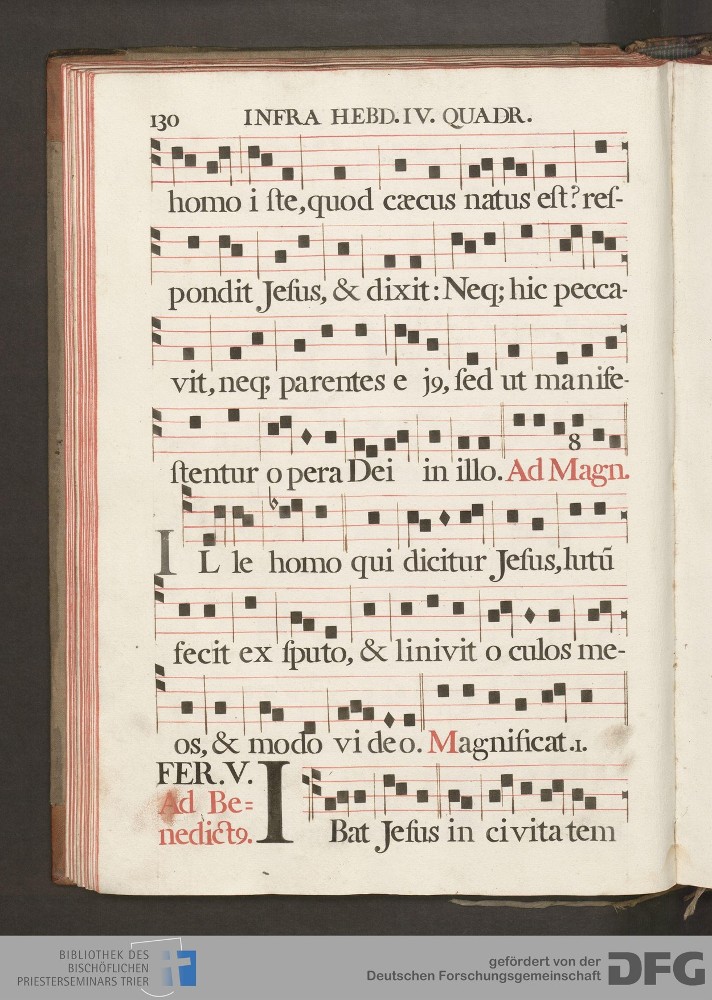 130 INFRA HEBD. IV. QUADR.
homo i ſte, quod cæcus natus eſt? reſ-
pondit Jeſus, & dixit: Neq; hic pecca-
vit, neq; parentes e j9, ſed ut manife-
8
ſtentur o pera Dei in illo. Ad Magn.
IL le homo qui dicitur Jeſus, lutũ
fecit ex ſputo, & linivit o culos me-
os, & modo vi de o. Magnificat .1.
FER. V.
Ad Be=
nedict9.
IBat Jeſus in civita tem
BIBLIOTHEK DES
BISCHÖFLICHEN
PRIESTERSEMINARS TRIER
gefördert von der
Deutschen Forschungsgemeinschaft
DFG